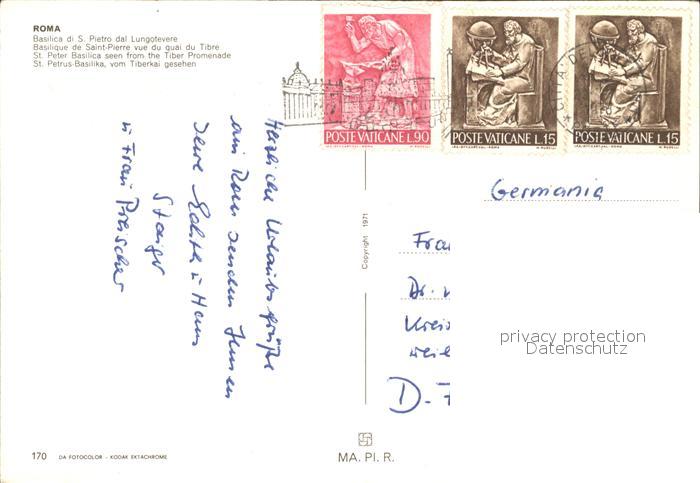 ROMA
Basilica di S. Pietro dal Lungotevere
Basilique de Saint-Pierre vue du quai du Tibre
St. Peter Basilica seen from the Tiber Promenade
St. Petrus-Basilika, vom Tiberkai gesehen
POSTE VATICANE L.90
POSTE VATICANE L.15
POSTE VATICANE L.15
CITTÀ DE
Germania
Herzliche Urlaubsgrüße
aus Rom senden Ihnen
Edith u Hans
Staiger
u Frau
Copyright 1971
Fra
Dr.
Kreis
D-7
privacy protection
Datenschutz
170 DA FOTOCOLOR - KODAK EKTACHROME
MA. PI. R.